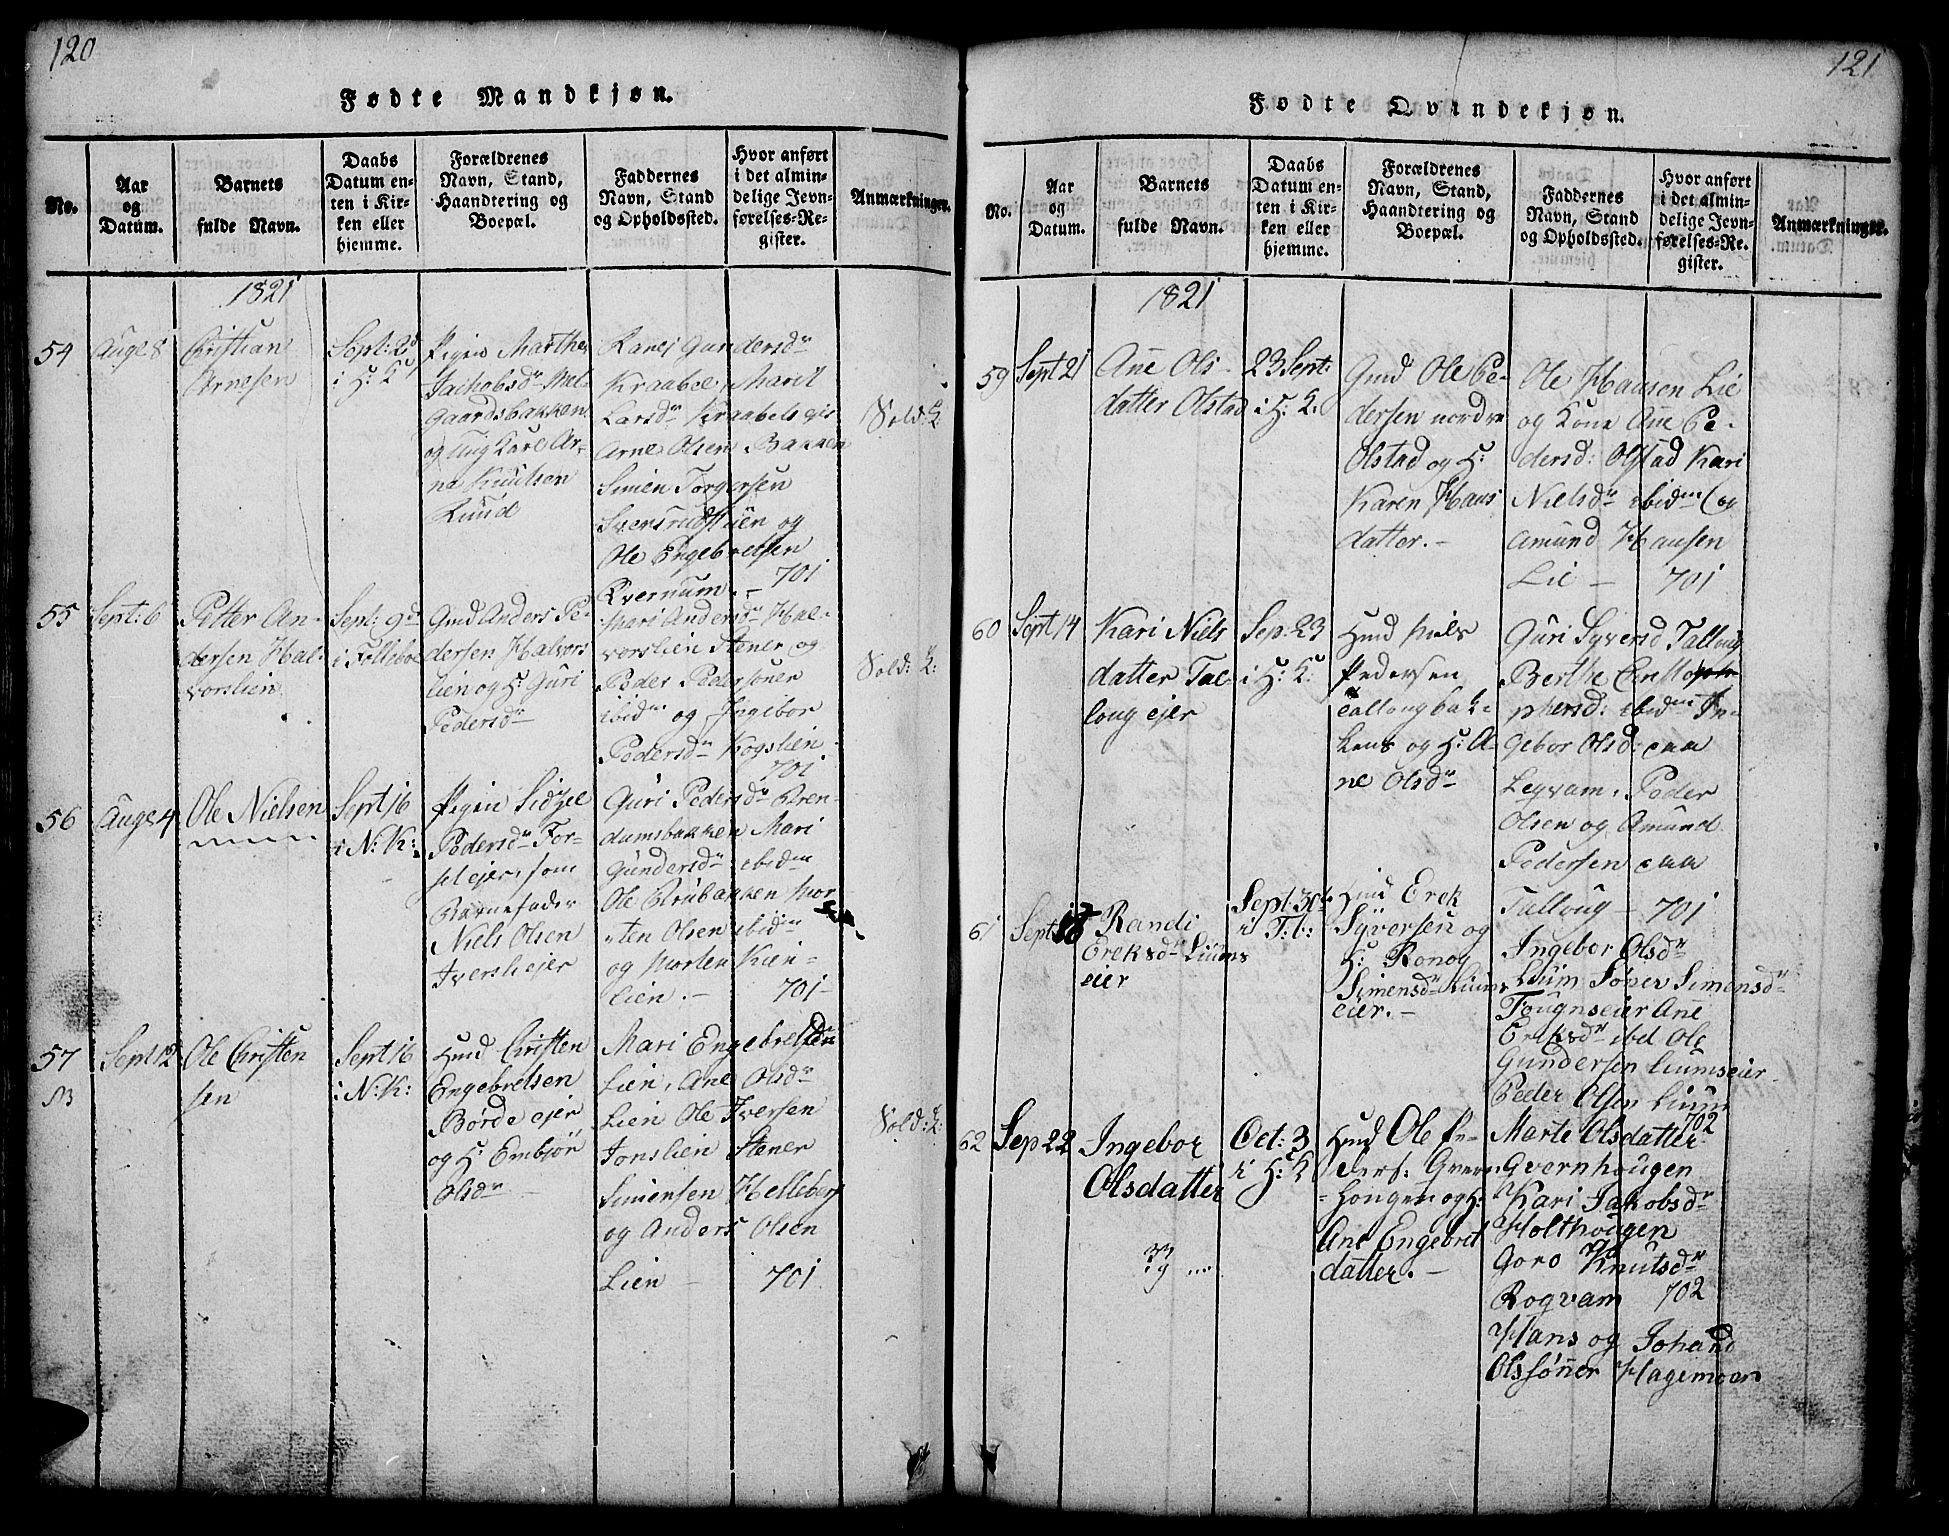 120
Fødte Mandkjøn.
No.
Aar
og
Datum.
Barnets
fulde Navn.
Daabs
Datum en-
ten i Kir-
ken eller
hjemme.
Forældrenes
Navn, Stand,
Haandtering og
Boepæl.
Faddernes
Navn, Stand
og Opholdssted.
Hvor anført
i det almin-
delige Jevn-
førelses-Re-
gister.
Anmærkninger.
1821
54
Aug: 8
Christian
Arnesen
Sept: 2d
i H: K
Pigen Marthe
Jachobsdr
gaardsbakken
og Ung Karl Ar-
ne Knutsen
Ranej Gundersdr
Kraabøl, Marit
Larsdr Kraabels
Arne Olsen Bakken
Simen Torgersen
Sversrudstuen og
Ole Engebretsen
Kvernum. - 701
Vold: K:
55
Sept: 6
Petter An-
dersen Hal-
vorslien
Sept: 9d
i Follebo
Gmd Anders Pe-
dersen Halvors
lien og H: Guri
Pedersdr
Mari Andersdr Hal-
vorslien Stener og
Peder Pedersøner
ibidm og Ingebor
Pedersdr Kogslien
701
Vold: K:
56
Aug: 4
Ole Nielsen
Sept 16
i N: K:
Pigen Sidzel
Pedersdr For-
set ejer, som
Barnefader
Niels Olsen
Iverslieejer
Guri Pedersdr Bren-
dumsbakken Mari
Gundersdr ibidm
Ole Brubakken Mor-
ten Olsen ibidm
og Morten Kien-
lien. - 701-
57
NB
Sept 12
Ole Christen
sen
Sept 16
i N: K:
Hmd Christen
Engebretsen
Børde ejer
og H: Embjør
Olsdr -
Mari Engebretsdr
Lien, Ane Olsdr
Lien Ole Iversen
Jonslien Stener
Simensen Helleberg
og Anders Olsen
Lien - 701
Vold: K:
121
Fødte Qvindekjøn.
No.
Aar
og
Datum.
Barnets
fulde Navn.
Daabs
Datum en-
ten i Kir-
ken eller
hjemme.
Forældrenes
Navn, Stand,
Haandtering og
Boepæl.
Faddernes
Navn, Stand
og Opholdssted.
Hvor anført
i det almin-
delige Jevn-
førelses-Re-
gister.
Anmærkninger.
1821
59
Sept 21
Ane Ols-
datter Olstad
23 Sept:
i H: K:
Gmd Ole Pe-
dersen nordre
Olstad og H:
Karen Hans
datter. -
Ole Hansen Lie
og Kone Ane Pe-
dersd: Olstad Kari
Nielsdr ibidm og
Amund Hansen
Lie - 701
60
Sept 14
Kari Niels
datter Tal-
loug ejer
Sep: 23
i H: K:
Hmd Niels
Pedersen
Tallougbak-
kens og H: A-
ne Olsdr
Guri Syversd Talloug
Berthe Christo
phersd: ibidm In-
gebor Olsd: paa
Legvam, Peder
Olsen og Amund
Pedersen paa
Talloug - 701
61
Sept 18
Randi
Ereksdr Liums
eier
Sept: 30te
i F: b:
Hmd Erek
Syversen og
H: Ronog
Simensdr Liums
eier. -
Ingebor Olsdr
Lium Søner Simensdr
Fougnseier Ane
Ereksdr ibid Ole
Gundersen Liumseier
Peder Olsen Lium
702
62
Sep 22
Ingebor
Olsdatter
Oct: 3
i H: K
Hmd Ole Pe-
ders: Gvern
hougen og H:
Ane Engebret
datter. -
Marte Olsdatter
Gvernhougen
Kari Jakobsdr
Holthougen
Goro Knutsdr
Rogvam 702
Hans og Johan
Olssøner Hagemoen